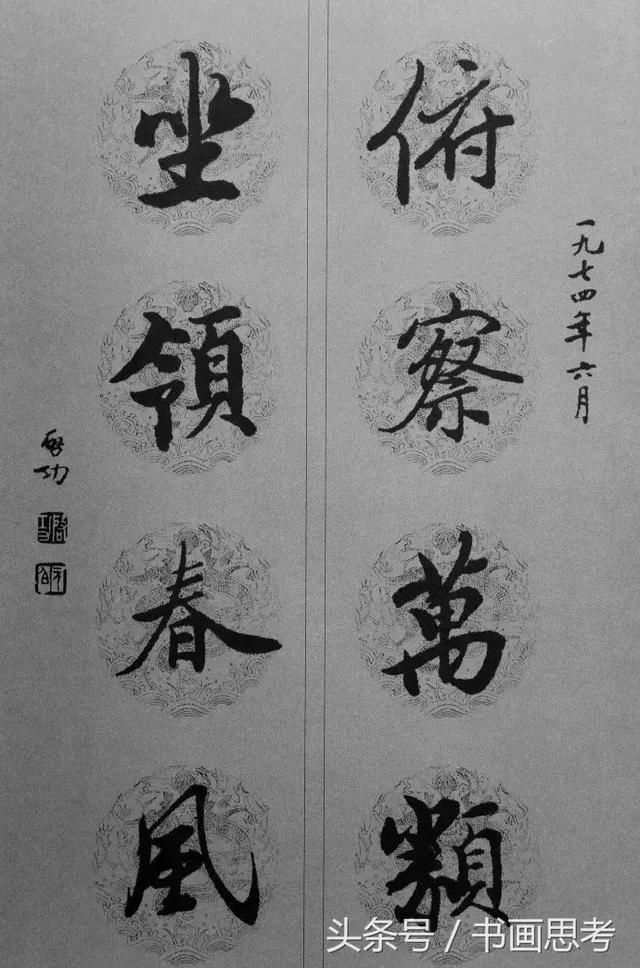 一九七四年六月
俯察萬類
坐領春風
啓功
头条号 / 书画思考